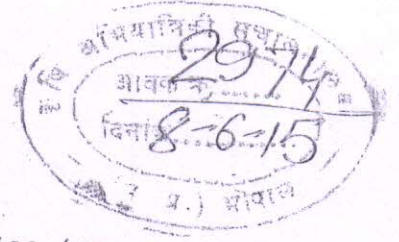 कृषि अभियांत्रिकी
आवक क्र. 2974
दिनांक 8-6-15
(म. प्र.) भोपाल